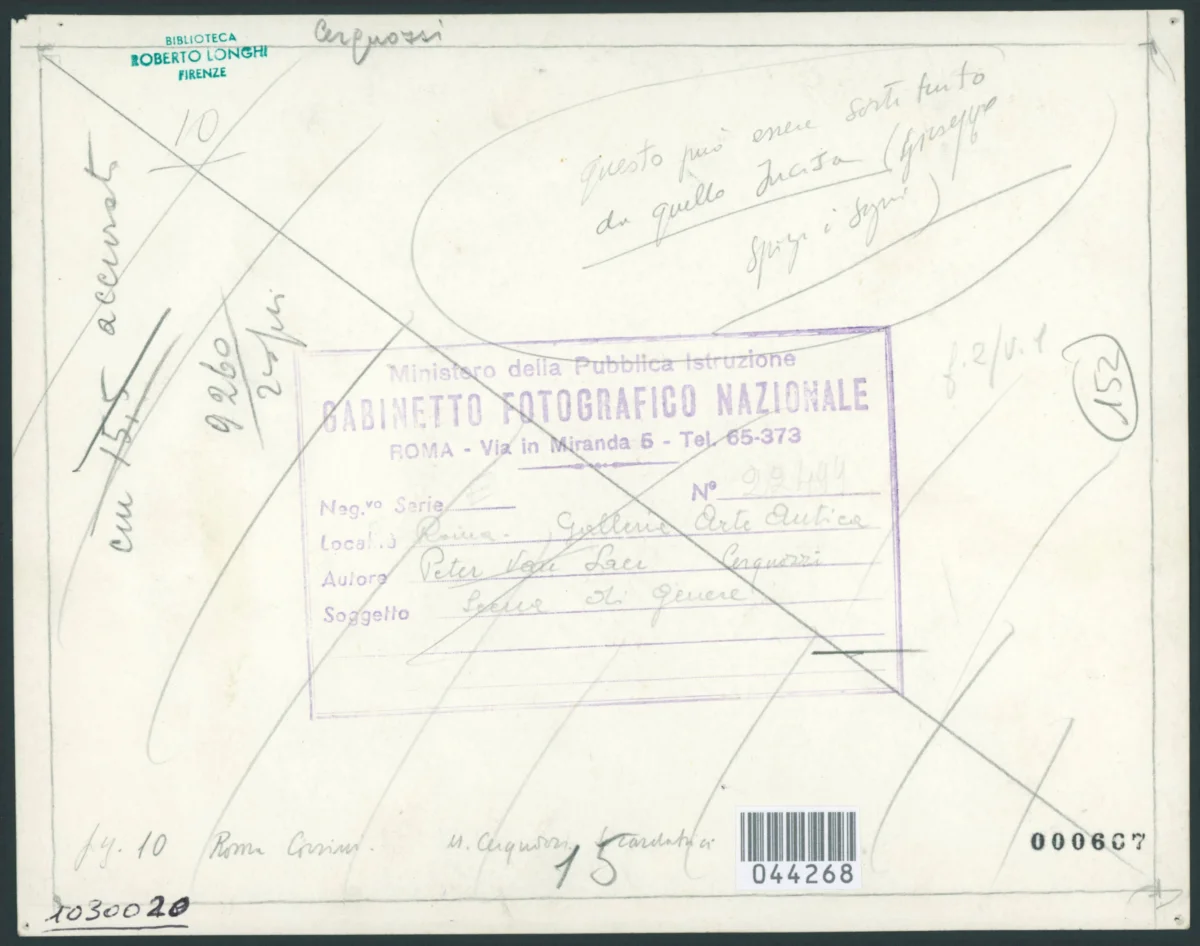 BIBLIOTECA
ROBERTO LONGHI
FIRENZE
Cerquozzi
10
questo può essere sostituito
da quello Incisa (Giuseppe
spiega i segni)
cm 15,5 accurato
9260
f.2/v.1
152
Ministero della Pubblica Istruzione
GABINETTO FOTOGRAFICO NAZIONALE
ROMA - Via in Miranda 5 - Tel. 65-373
Neg.vo Serie E N°
Località Roma - Galleria Arte Antica
Autore Peter Van Laer Cerquozzi
Soggetto Scena di genere
fig. 10 Roma Corsini. M. Cerquozzi. Scardatrici
15
044268
000607
1030020